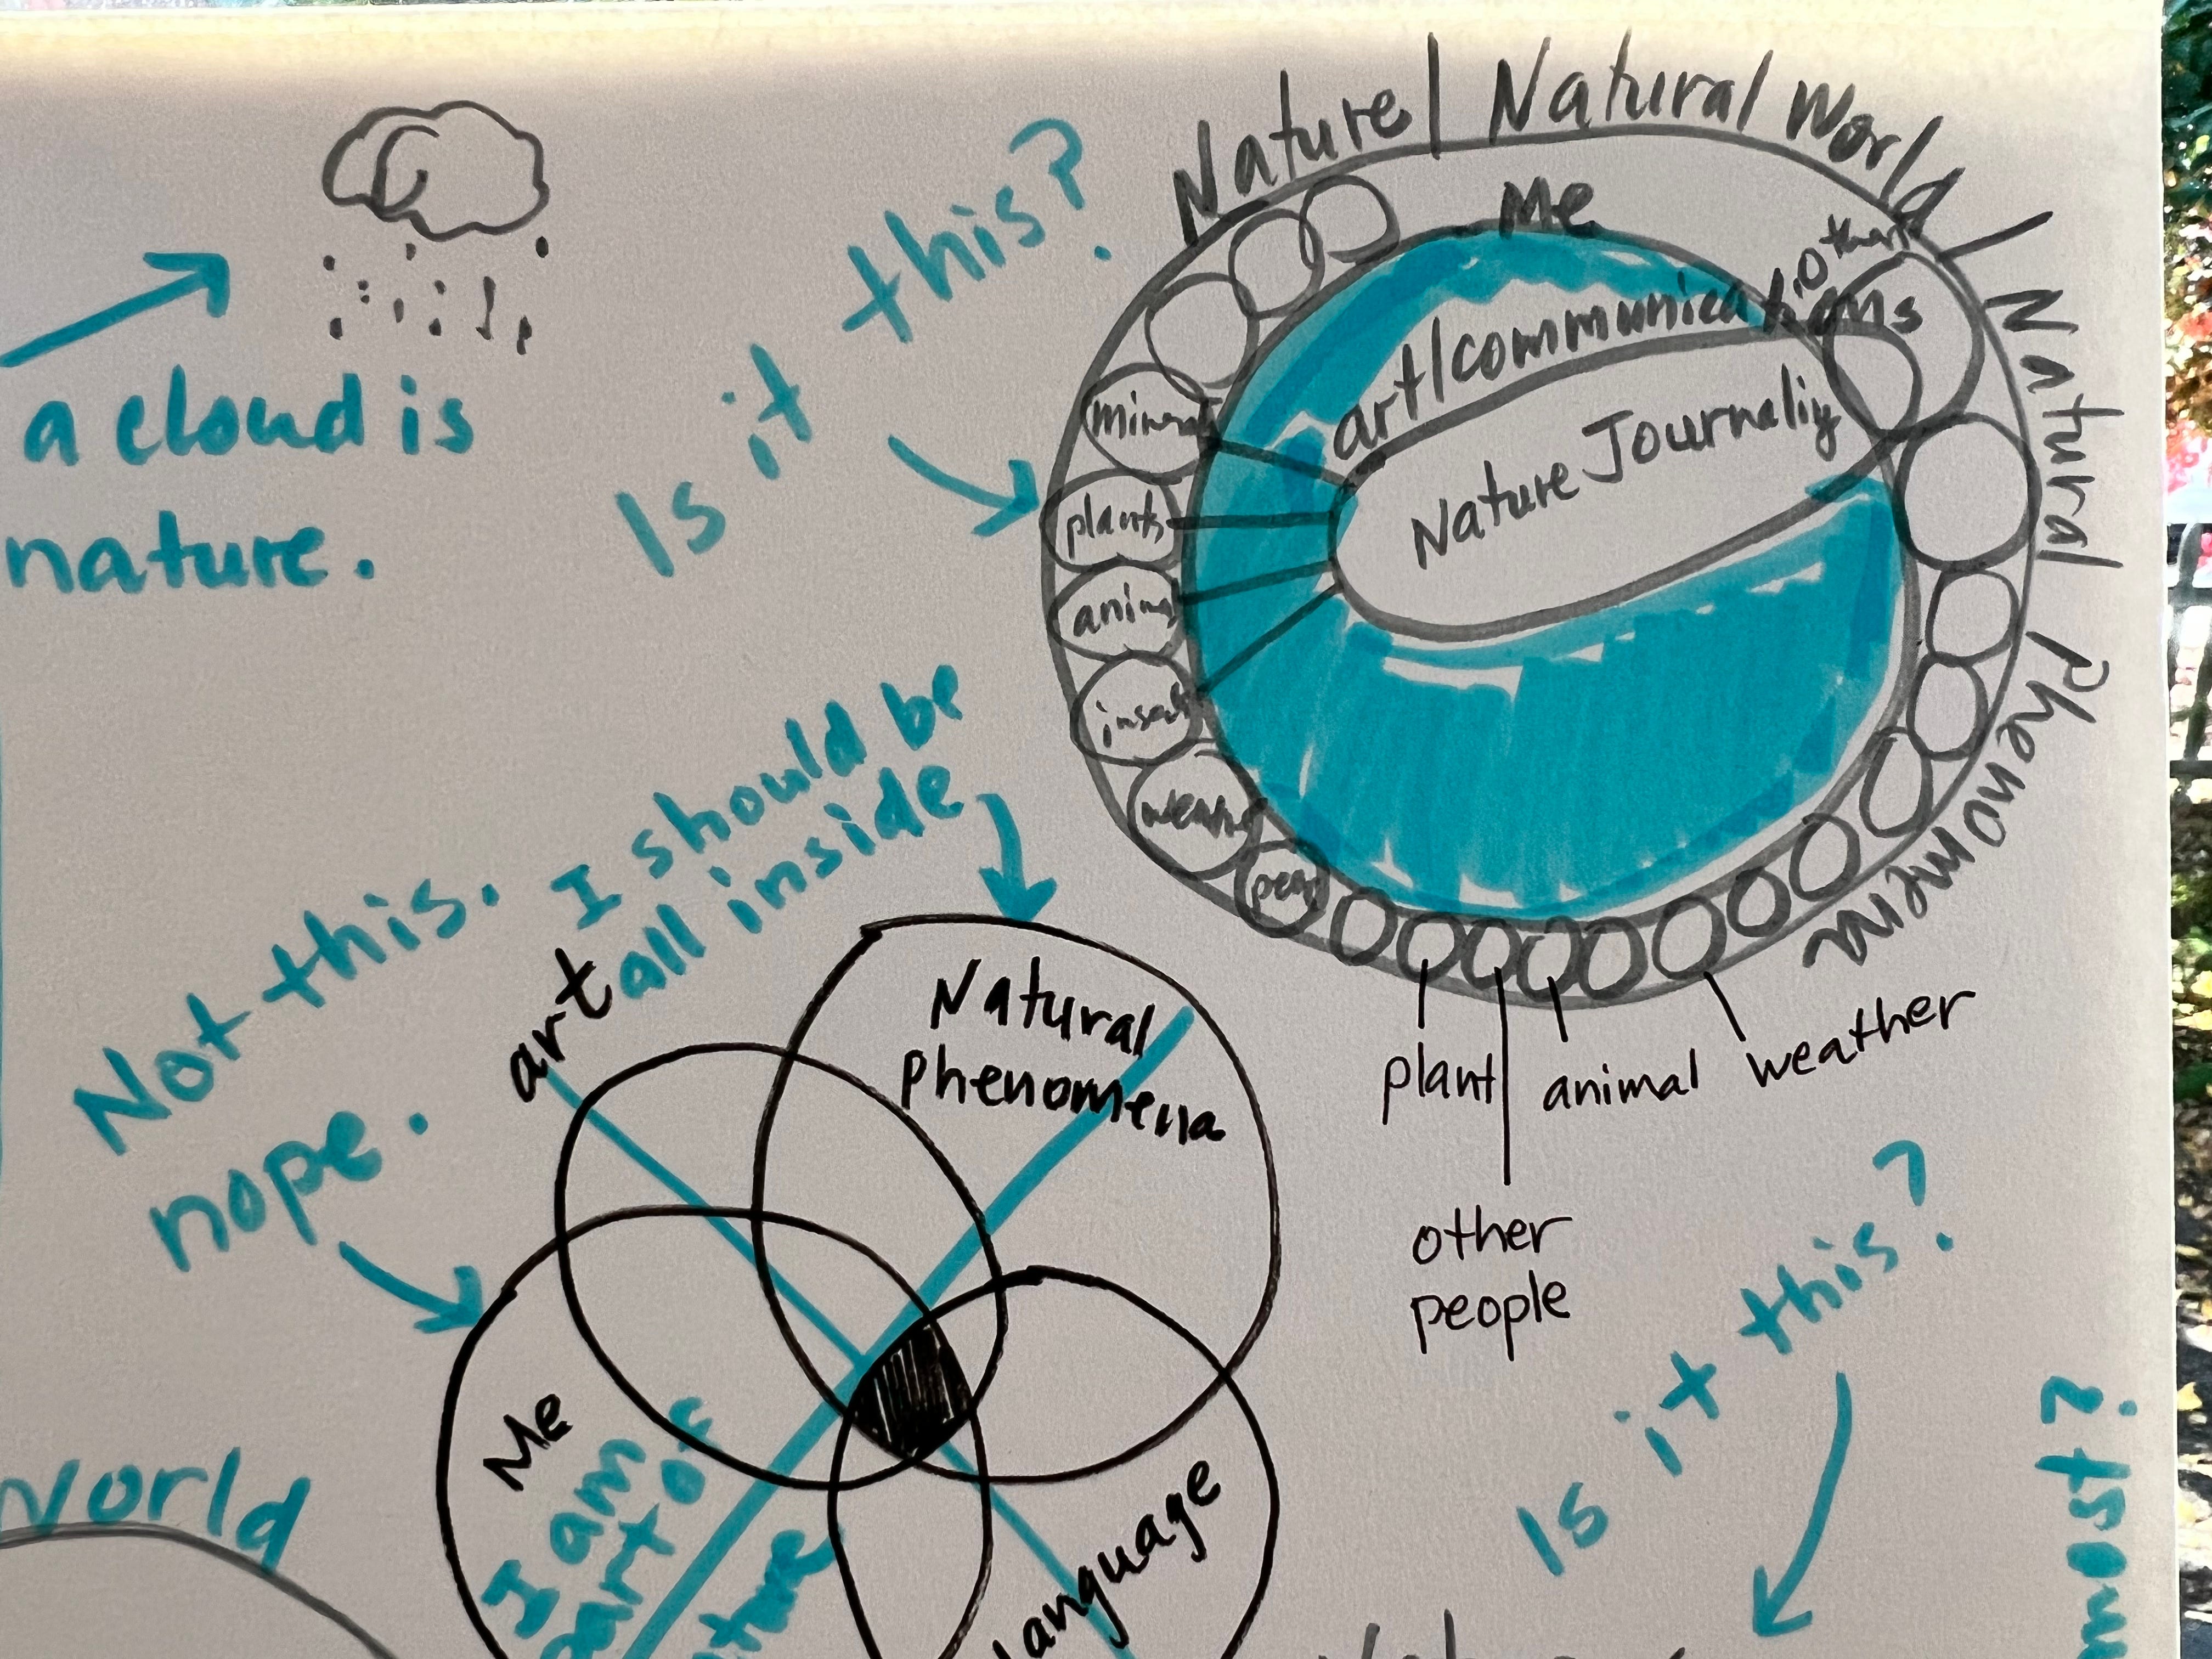 a cloud is
nature.
Is it this?
Nature | Natural World | Natural Phenomena
Me
others
art/communications
Nature Journaling
plants
weather
plant
animal
weather
other
people
Not this. I should be
all inside
nope.
art
Natural
phenomena
Me
I am
part of
Language
Is it this?
World
most?